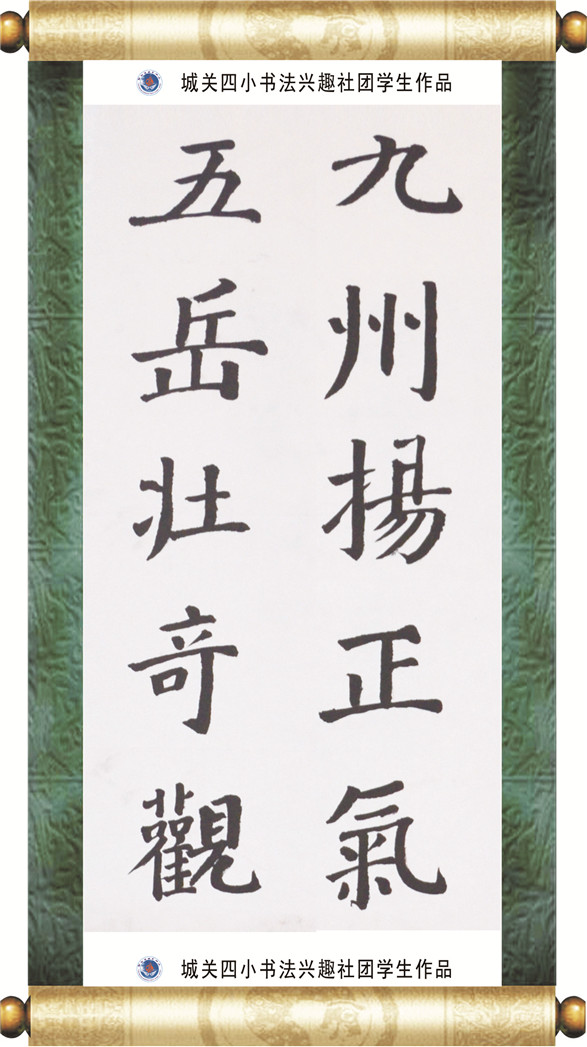 城关四小书法兴趣社团学生作品
九州揚正氣
五岳壮奇觀
城关四小书法兴趣社团学生作品